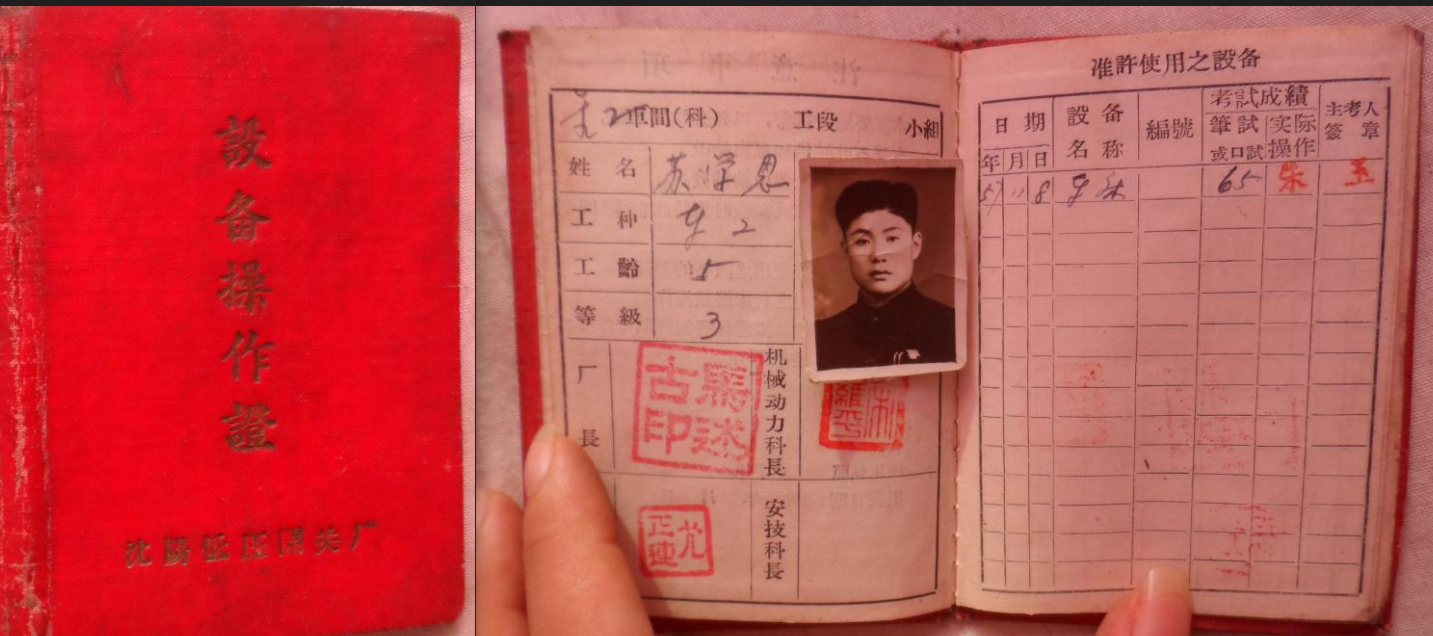 設备操作證
沈陽低压開关厂
車間(科) 工段 小組
姓名 苏学恩
工种
工齡 5
等級 3
厂長
馬述古印
机械动力科長
安技科長
尤正
准許使用之設备
日期 設备名称 編號 考試成績 主考人簽章
年 月 日 筆試或口試 实际操作
57 11 8 65 朱 玉